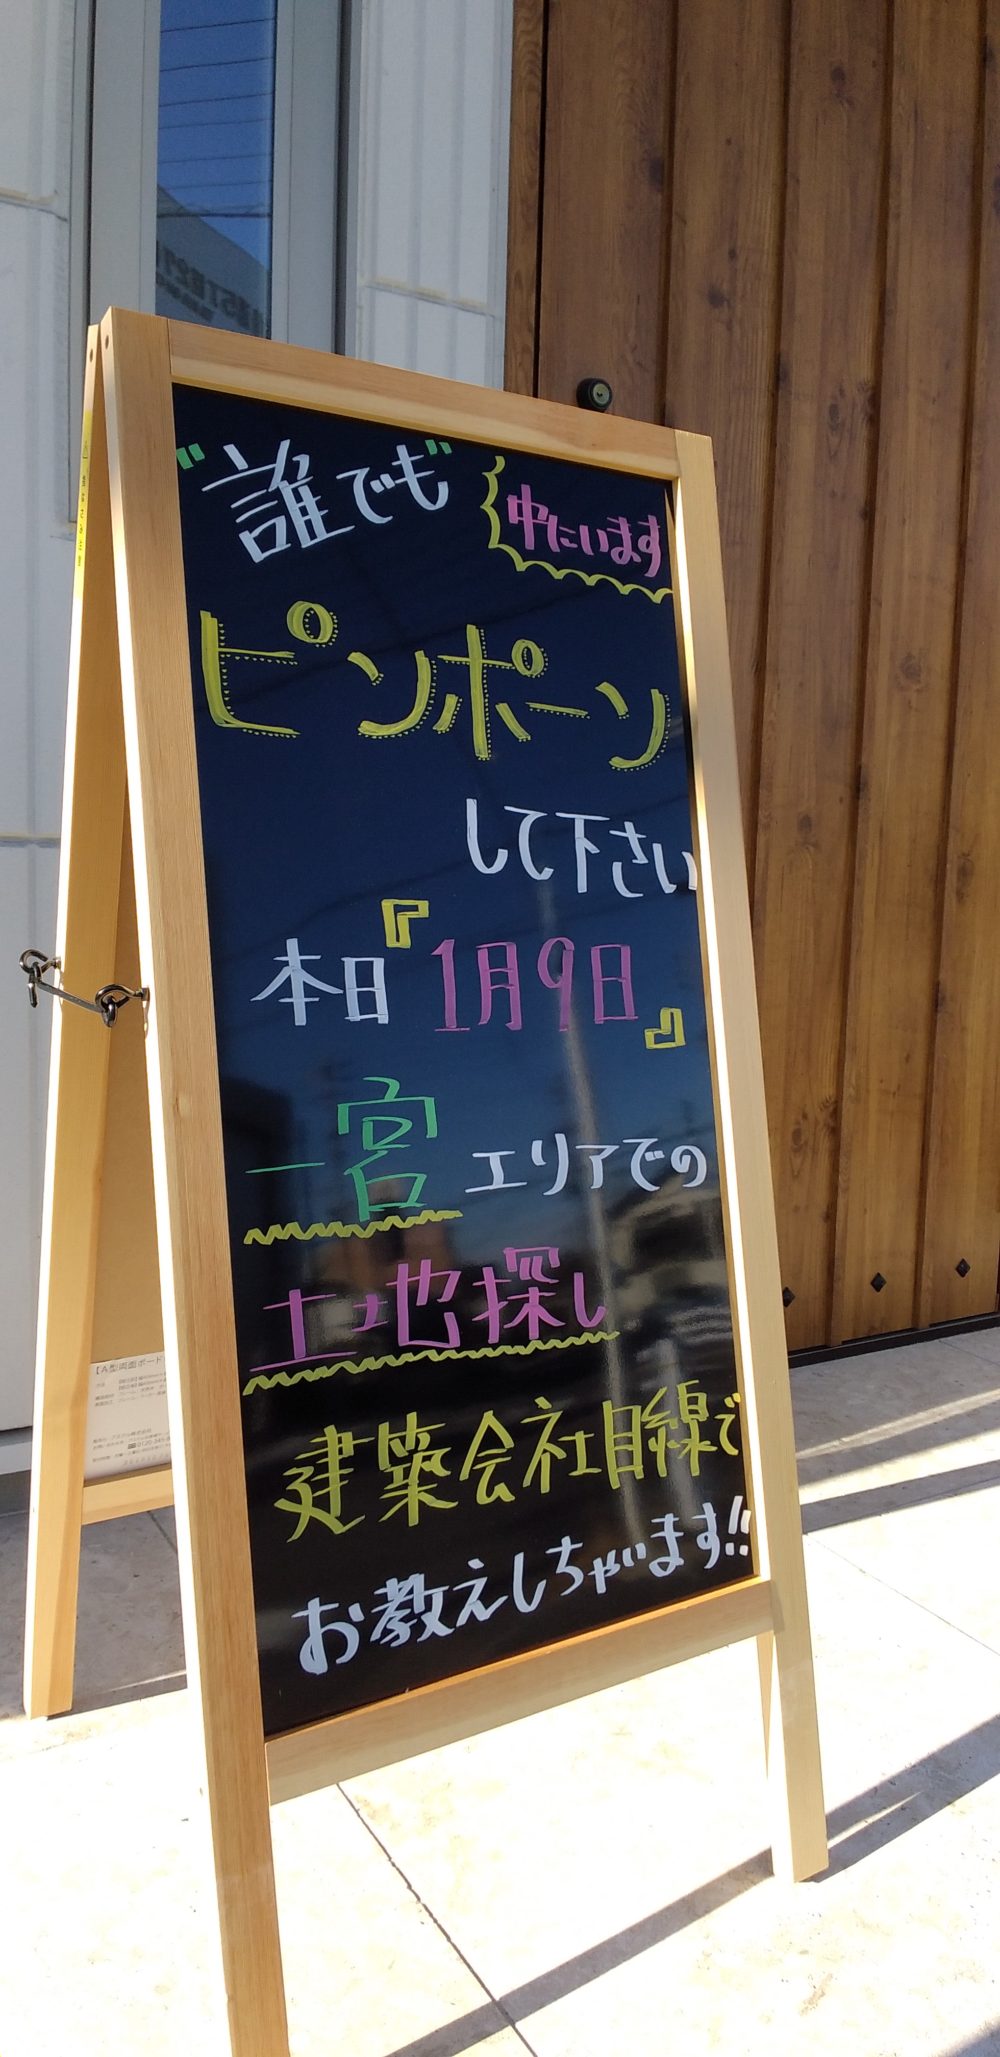 "誰でも"
中にいます
ピンポーン
して下さい
本日『1月9日』
一宮エリアでの
土地探し
建築会社目線で
お教えしちゃいます!!
【A型両面ボード